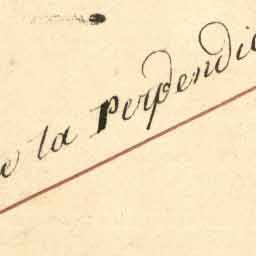 e la Perpendic